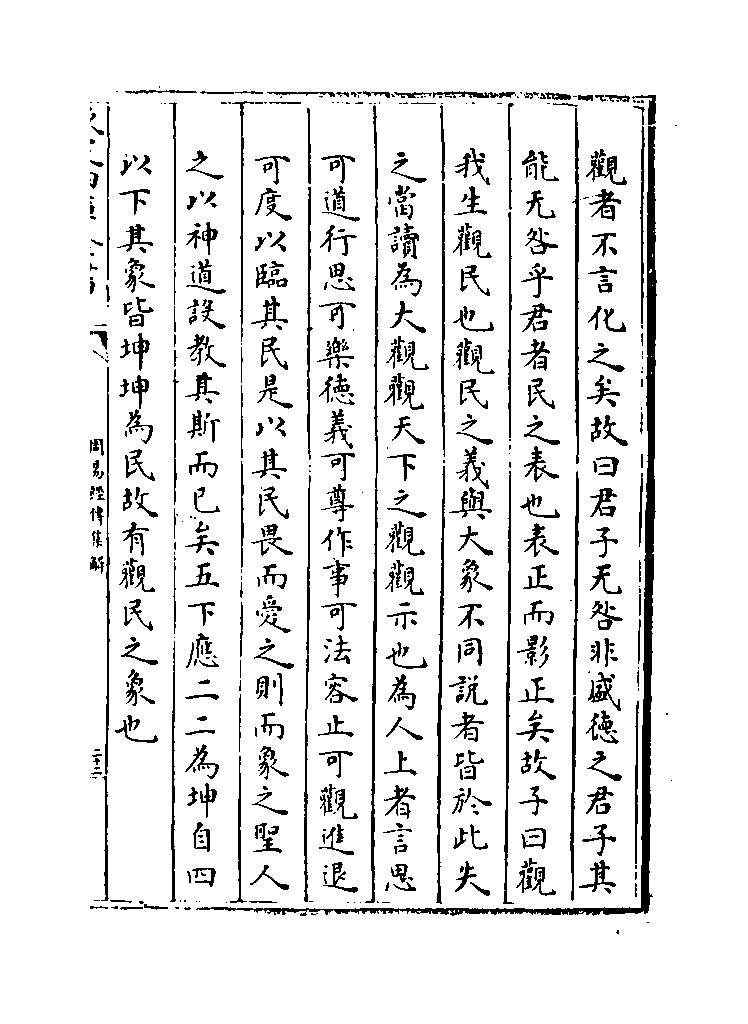 觀者不言化之矣故曰君子无咎非盛德之君子其
能无咎乎君者民之表也表正而影正矣故子曰觀
我生觀民也觀民之義與大象不同説者皆於此失
之當讀為大觀觀天下之觀觀示也為人上者言思
可道行思可樂德義可尊作事可法容止可觀進退
可度以臨其民是以其民畏而愛之則而象之聖人
之以神道設教其斯而已矣五下應二二為坤自四
以下其象皆坤坤為民故有觀民之象也
周易經傳集解
二十二